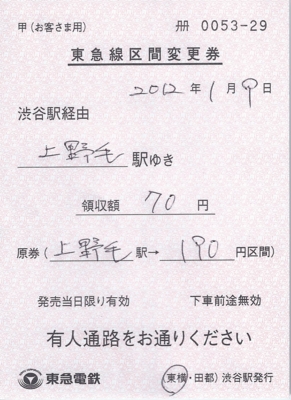 甲(お客さま用) 冊 0053-29
東急線区間変更券
2012年1月9日
渋谷駅経由
上野毛 駅ゆき
領収額 70円
原券(上野毛駅→190円区間)
発売当日限り有効 下車前途無効
有人通路をお通りください
東急電鉄 (東横・田都)渋谷駅発行